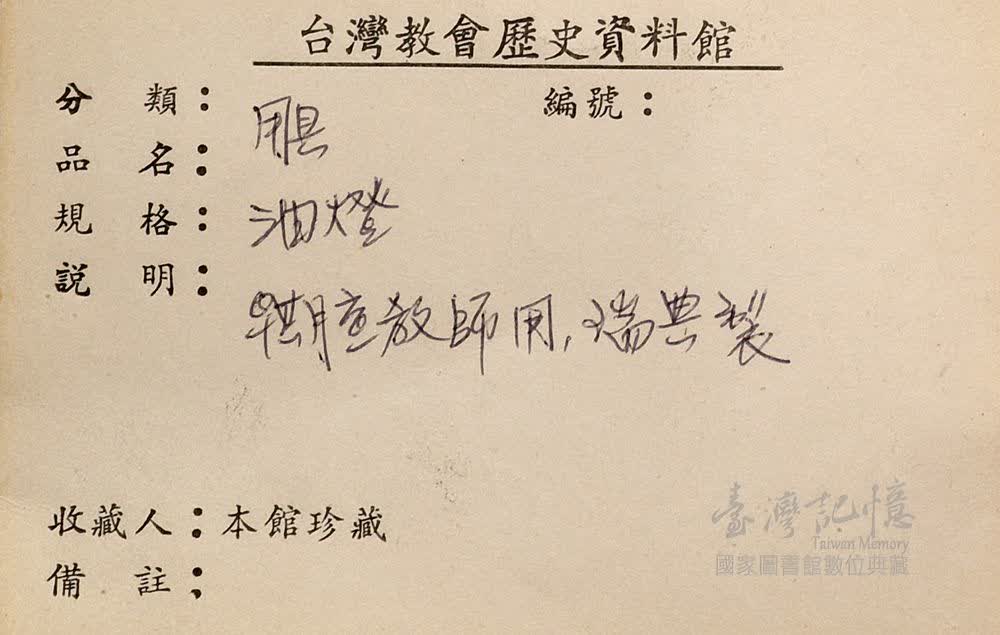 台灣教會歷史資料館
分類： 用具 編號：
品名：
規格： 油燈
説明：
早期宣教師用，瑞典製
收藏人：本館珍藏
備註：
臺灣記憶
Taiwan Memory
國家圖書館數位典藏